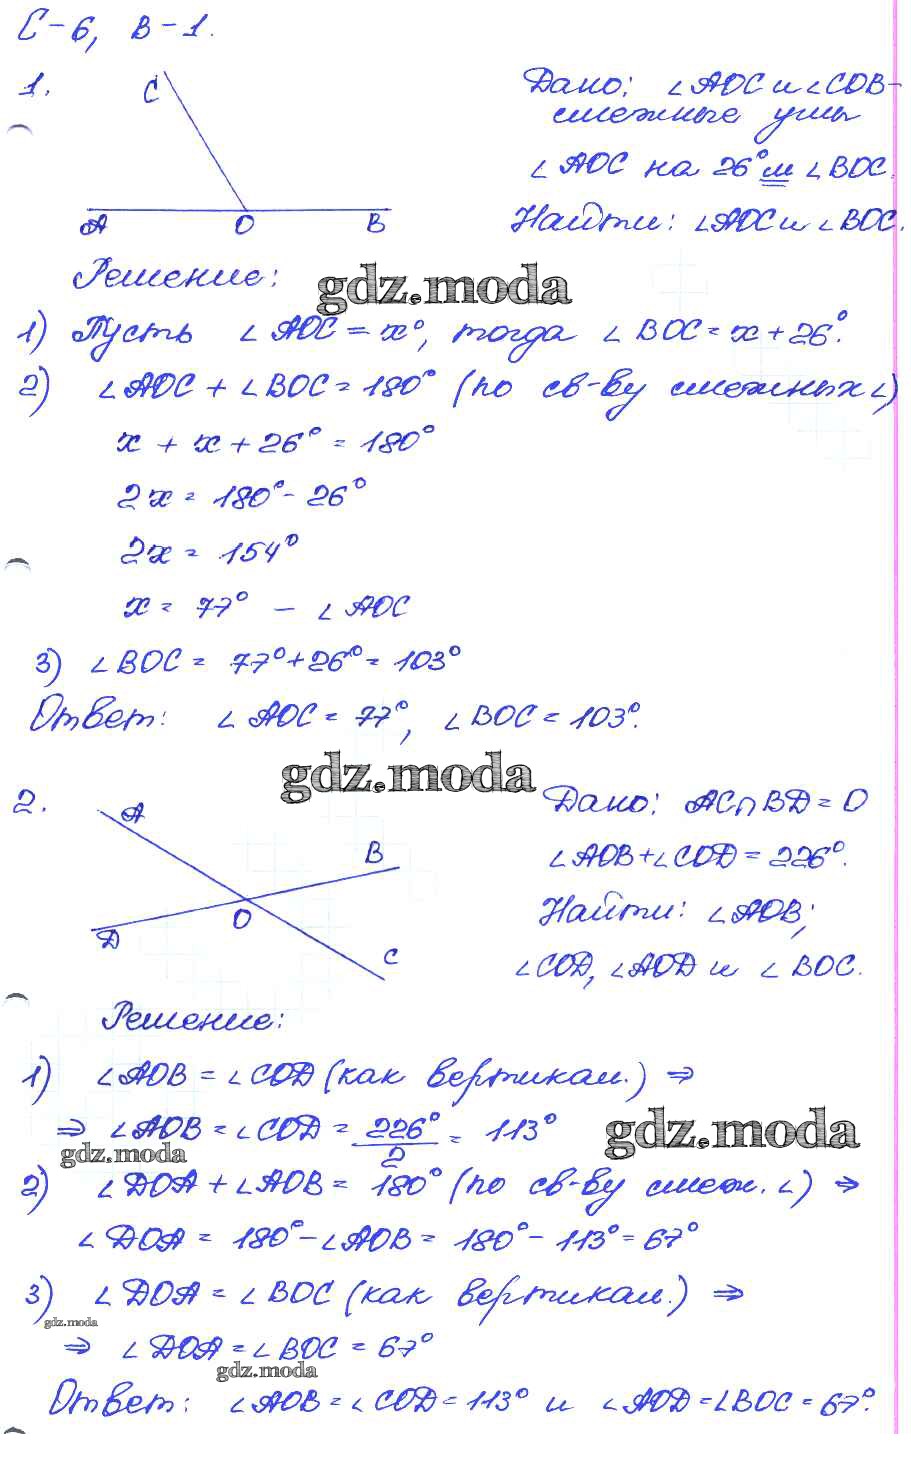 С-6, В-1.
1.
С
А О В
Дано: ∠AOC и ∠COB-
смежные углы
∠AOC на 26° м ∠BOC.
Найти: ∠AOC и ∠BOC.
Решение:
gdz.moda
1) Пусть ∠AOC = x°, тогда ∠BOC = x + 26°.
2) ∠AOC + ∠BOC = 180° (по св-ву смежных ∠)
x + x + 26° = 180°
2x = 180° - 26°
2x = 154°
x = 77° - ∠AOC
3) ∠BOC = 77° + 26° = 103°
Ответ: ∠AOC = 77°, ∠BOC = 103°.
gdz.moda
2.
A
B
O
D
C
Дано: AC∩BD = O
∠AOB + ∠COD = 226°.
Найти: ∠AOB;
∠COD, ∠AOD и ∠BOC.
Решение:
1) ∠AOB = ∠COD (как вертикал.) ⇒
⇒ ∠AOB = ∠COD = 226°/2 = 113°
gdz.moda
gdz.moda
2) ∠DOA + ∠AOB = 180° (по св-ву смеж. ∠) ⇒
∠DOA = 180° - ∠AOB = 180° - 113° = 67°
3) ∠DOA = ∠BOC (как вертикал.) ⇒
gdz.moda
⇒ ∠DOA = ∠BOC = 67°
gdz.moda
Ответ: ∠AOB = ∠COD = 113° и ∠AOD = ∠BOC = 67°.